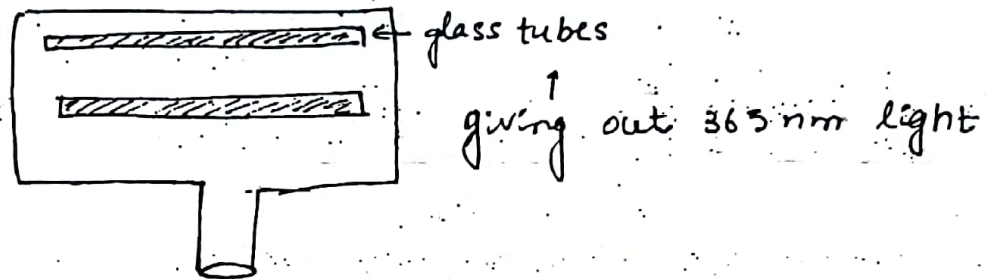 ← glass tubes
↑
giving out 365 nm light